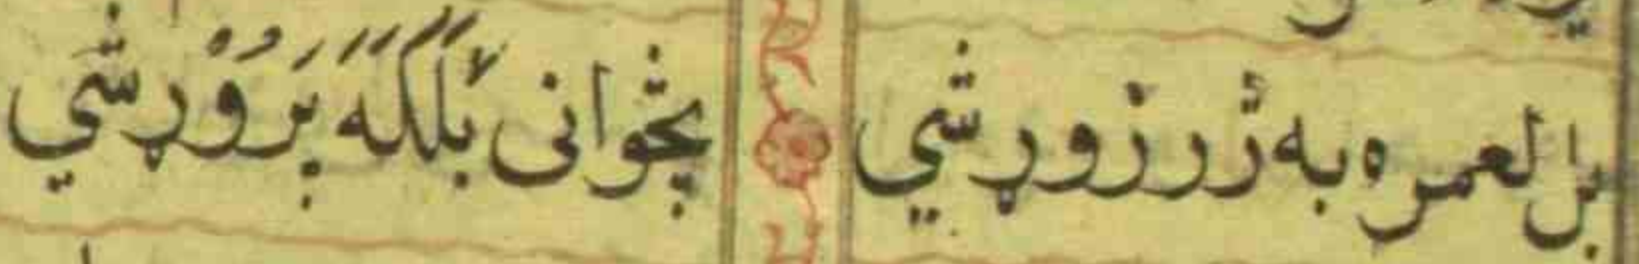 بل لعمره به ژر زوړ شي
پځوانی بلکه پروړ شي